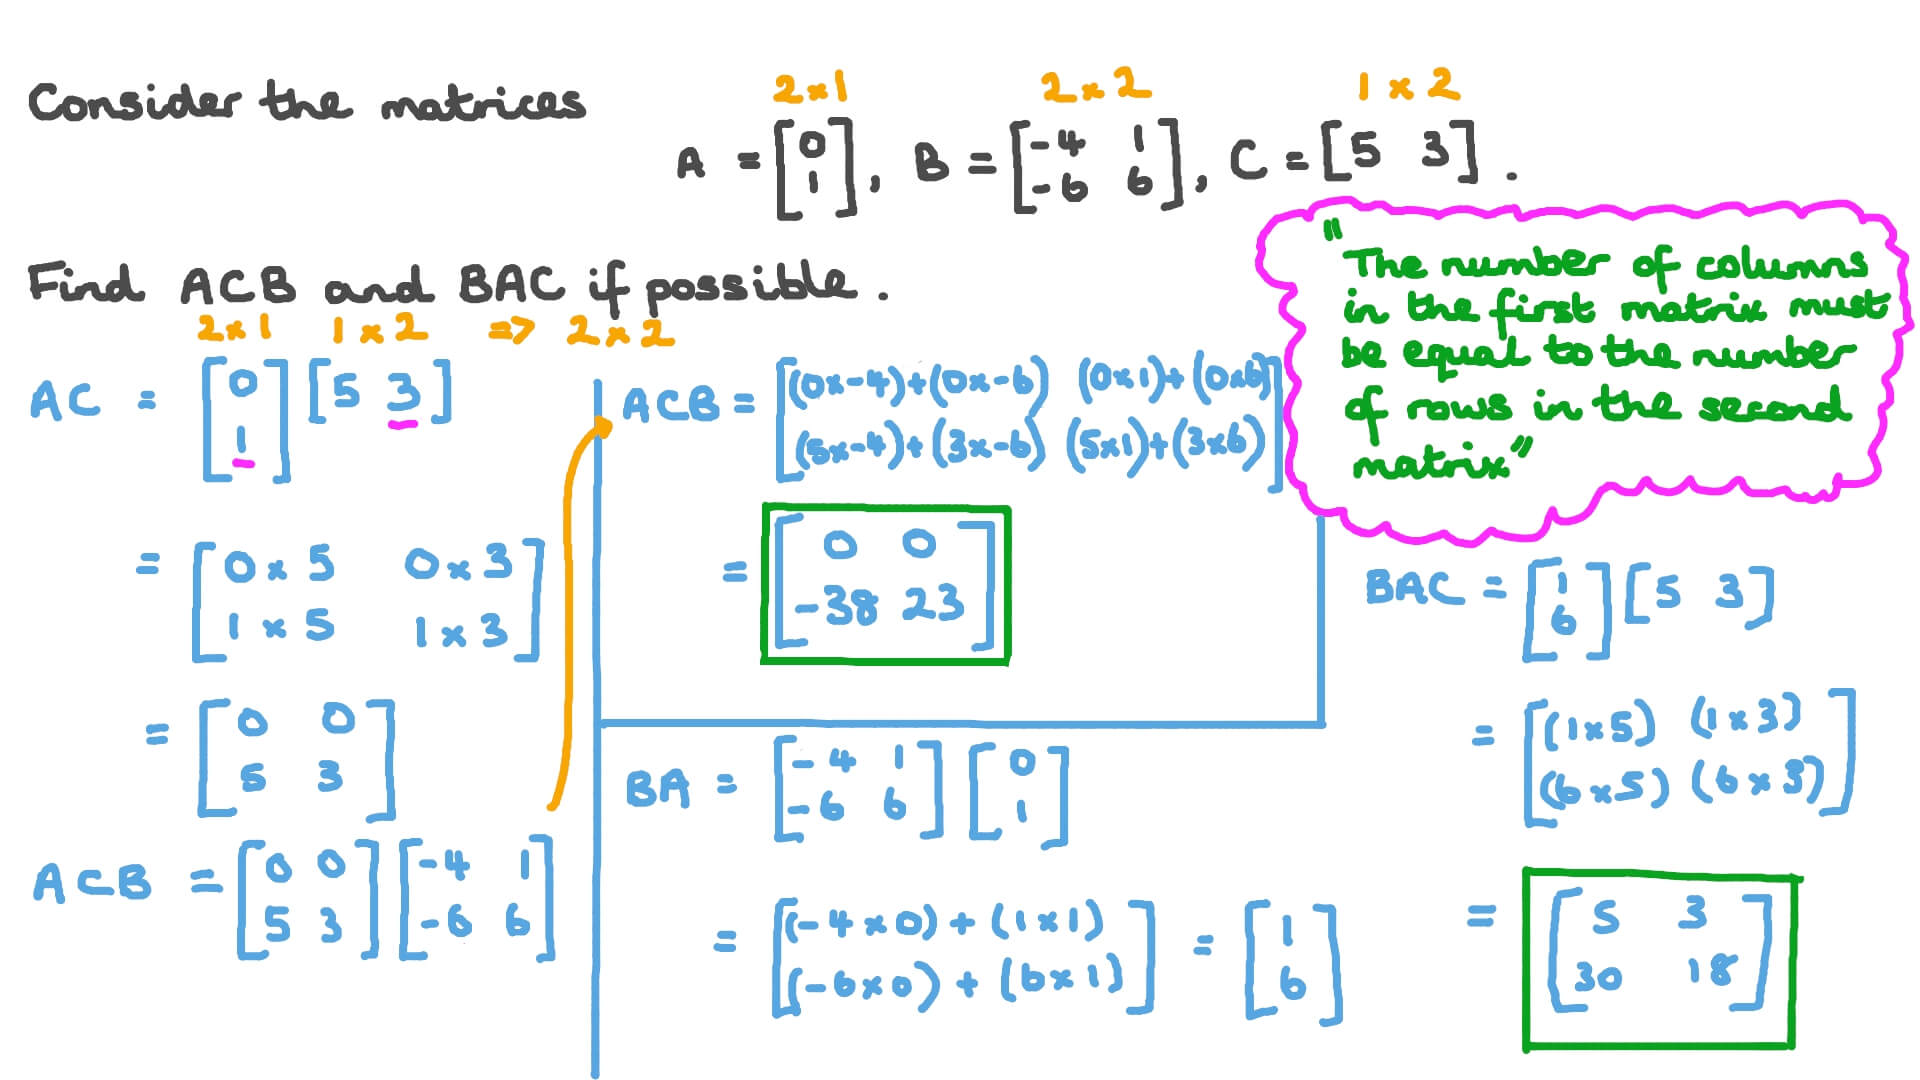 Consider the matrices
2×1 2×2 1×2
A = [0 1], B = [-4 1 -6 6], C = [5 3].
Find ACB and BAC if possible.
"The number of columns
in the first matrix must
be equal to the number
of rows in the second
matrix"
2×1 1×2 => 2×2
AC = [0
1] [5 3]
= [0×5 0×3
1×5 1×3]
= [0 0
5 3]
ACB = [0 0 [-4 1
5 3] -6 6]
ACB = [(0×-4)+(0×-6) (0×1)+(0×6)
(5×-4)+(3×-6) (5×1)+(3×6)]
= [0 0
-38 23]
BA = [-4 1 [0
-6 6] 1]
= [(-4×0)+(1×1) = [1
(-6×0)+(6×1)] 6]
BAC = [1 [5 3]
6]
= [(1×5) (1×3)
(6×5) (6×3)]
= [5 3
30 18]